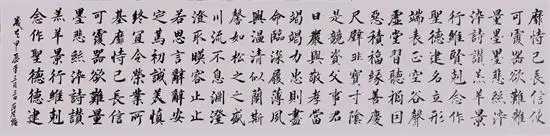 靡恃己長信使
可覆器欲難量
墨悲絲染
詩讚羔羊景
行維賢剋念作
聖德建名立形
端表正空谷傳聲
虛堂習聽禍因
惡積福緣善慶
尺璧非寶寸陰
是競資父事君
曰嚴與敬孝當
竭力忠則盡
命臨深履薄夙
興溫凊似蘭斯
馨如松之盛
川流不息淵澄
澄取暎容止
若思言辭安
定篤初誠美慎
終宜令榮業所
基靡恃己長信
可覆器欲難量
墨悲絲染詩讚
羔羊景行維剋
念作聖德建
歲次甲